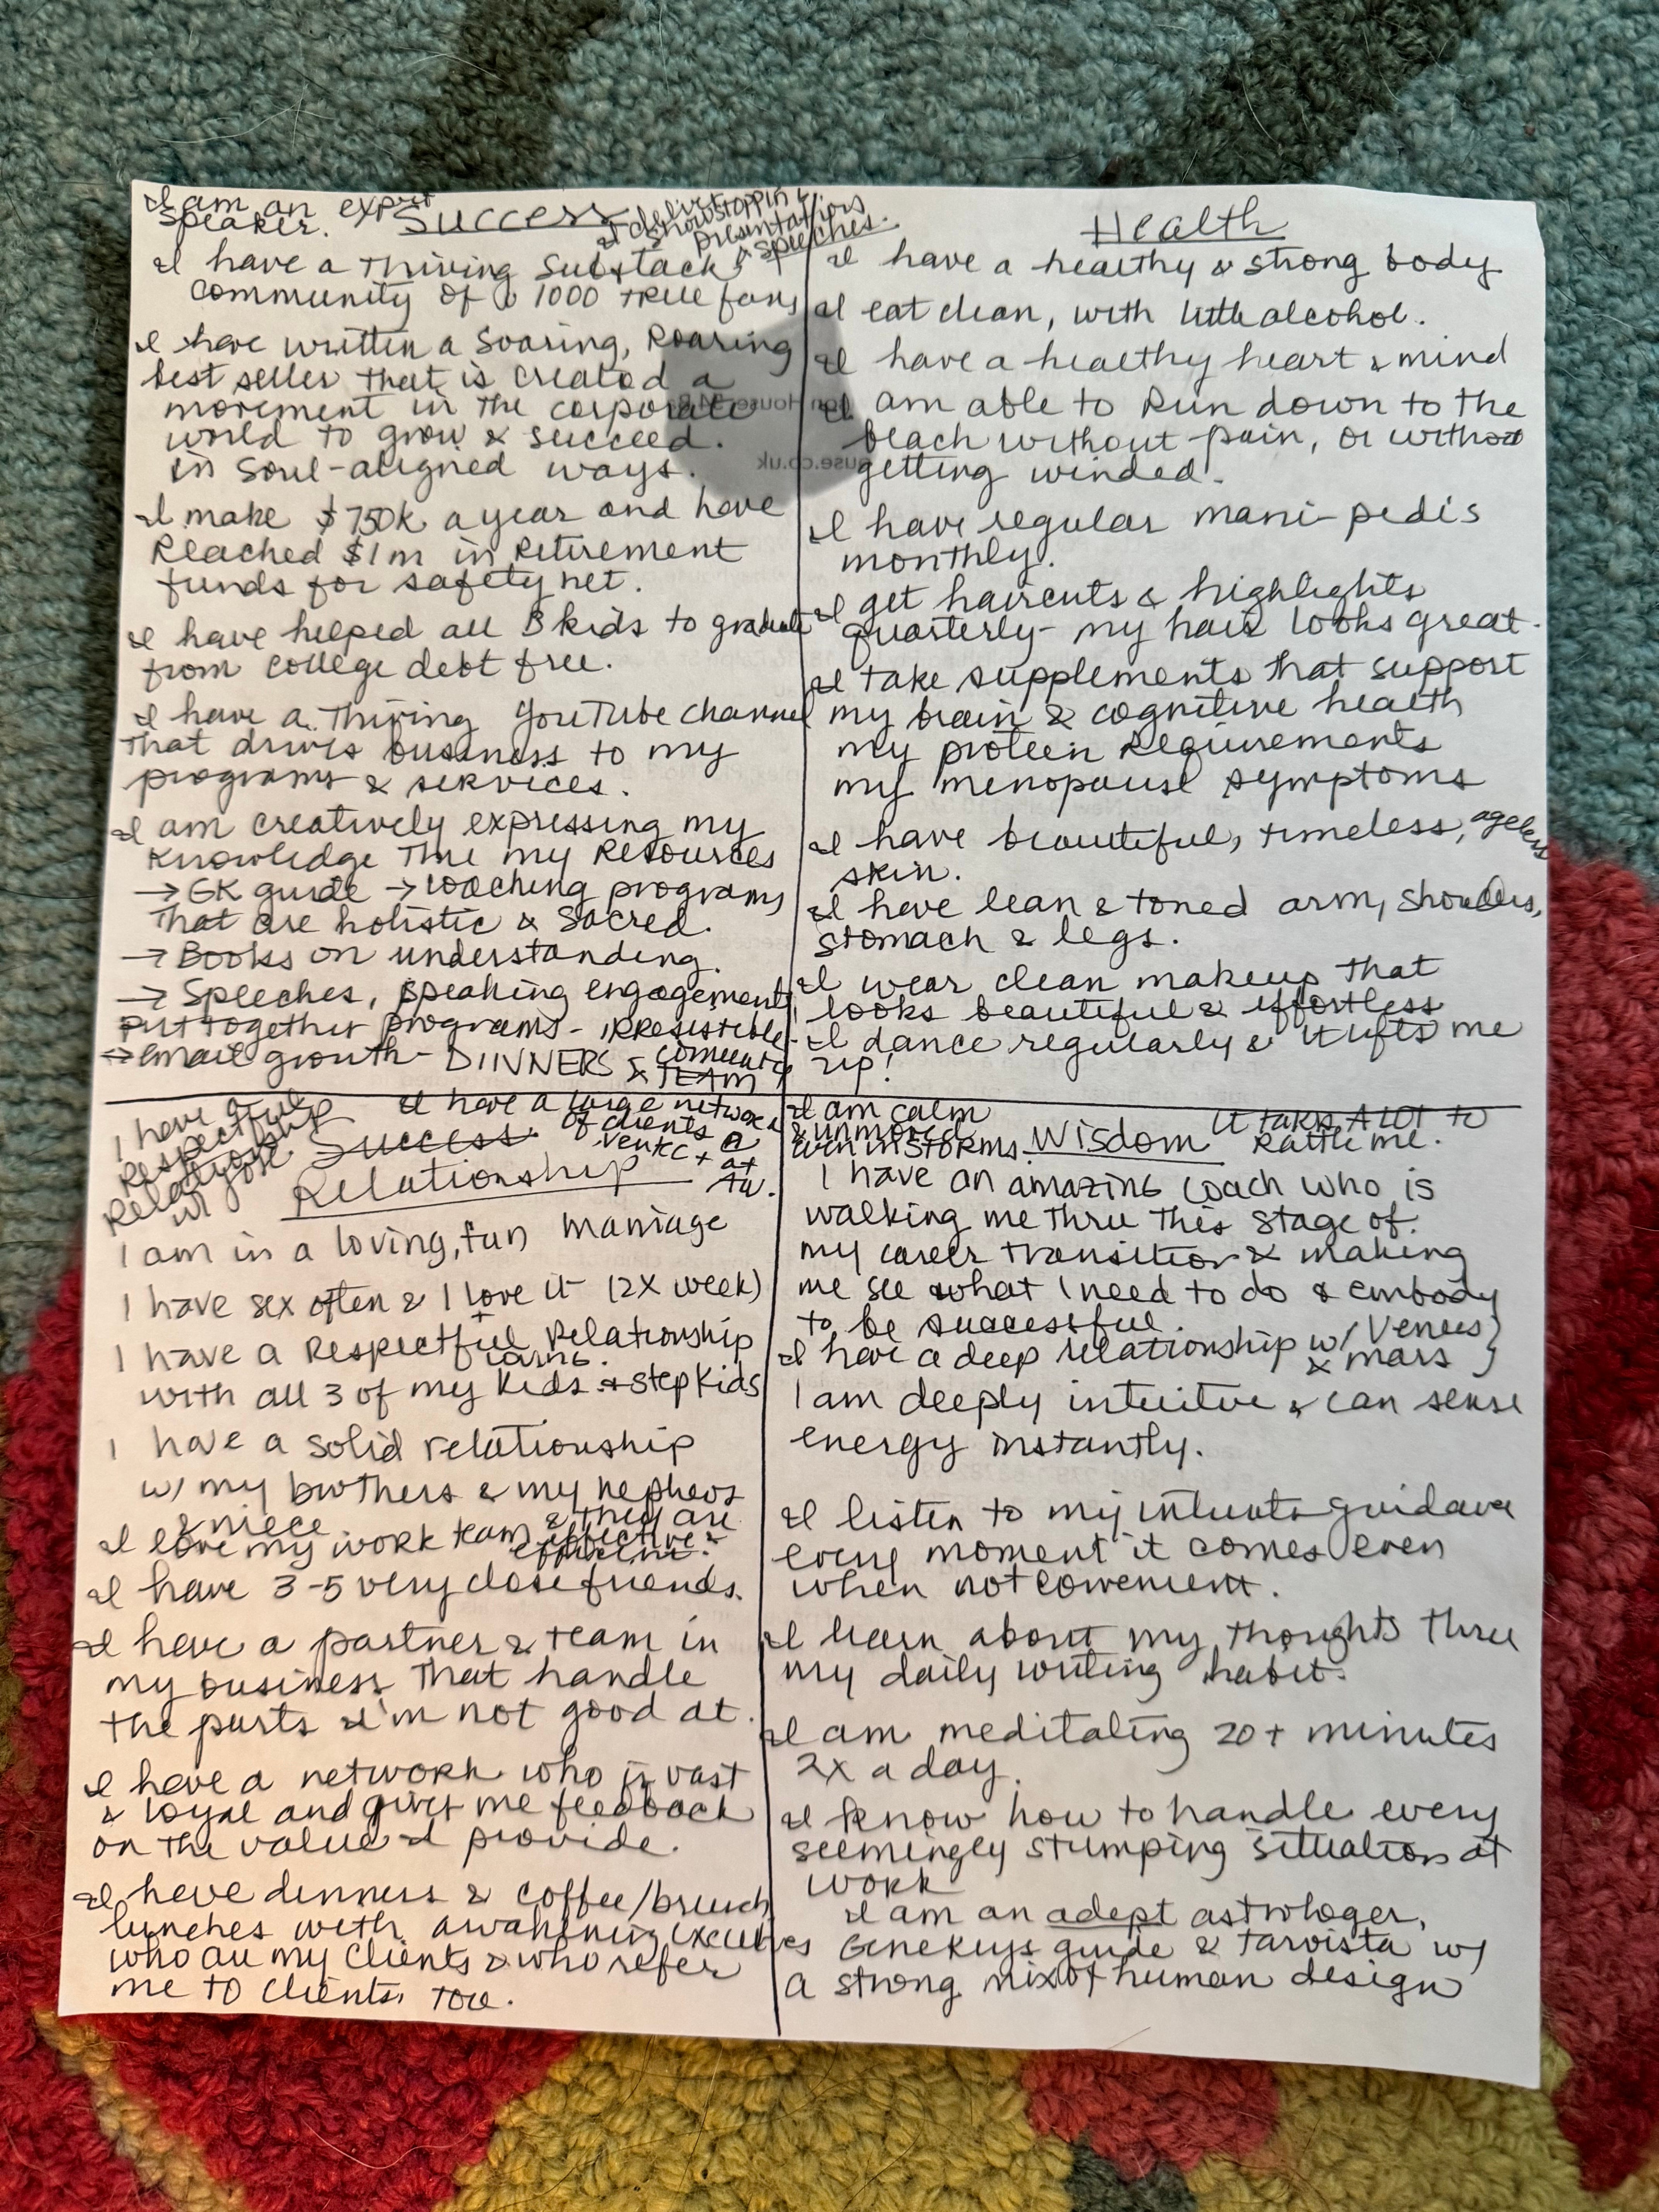 I am an expert
speaker.
Success
I deliver
showstopping
presentations
& speeches.
I have a thriving Substack
community of 1000 true fans
I have written a soaring, Roaring
best seller that is created a
movement in the corporate
world to grow & succeed.
in soul-aligned ways.
I make $750k a year and have
Reached $1m in Retirement
funds for safety net.
I have helped all 3 kids to graduate
from college debt free.
I have a Thriving YouTube channel
that drives business to my
programs & services.
I am creatively expressing my
knowledge thru my Resources
→ GK guide → coaching programs
that are holistic & sacred.
→ Books on understanding.
→ Speeches, speaking engagements
put together programs - irresistible
→ email growth - DINNERS &
community
x TEAM
Health
I have a healthy & strong body
I eat clean, with little alcohol.
I have a healthy heart & mind
I am able to Run down to the
beach without pain, or without
getting winded.
I have regular mani-pedis
monthly.
I get haircuts & highlights
quarterly - my hair looks great.
I take supplements that support
my brain & cognitive health
my protein Requirements
my menopause symptoms
I have beautiful, timeless, ageless
skin.
I have lean & toned arm, shoulders,
stomach & legs.
I wear clean makeup that
looks beautiful & effortless
I dance regularly & it lifts me
up!
I have a
Respectful
Relationship
w/
Success
I have a large network
of clients @
+ at
Relationship
I am in a loving, fun marriage
I have sex often & I love it (2x week)
I have a Respectful Relationship
+ loving.
with all 3 of my kids & stepkids
I have a solid relationship
w/ my brothers & my nephews
& niece
I love my work team & they are
effective &
efficient.
I have 3-5 very close friends.
I have a partner & team in
my business that handle
the parts I'm not good at.
I have a network who is vast
& loyal and gives me feedback
on the value I provide.
I have dinners & coffee/brunch
lunches with awakening executives
who are my clients & who refer
me to clients, too.
I am calm
& unmoved
even in STORMS.
Wisdom
It takes A LOT to
Rattle me.
I have an amazing coach who is
walking me thru this stage of
my career transition & making
me see what I need to do & embody
to be successful.
I have a deep relationship w/ Venus }
& mars }
I am deeply intuitive & can sense
energy instantly.
I listen to my intuits guidance
every moment it comes even
when not convenient.
I learn about my thoughts thru
my daily writing habit.
I am meditating 20+ minutes
2x a day.
I know how to handle every
seemingly stumping situation at
work
I am an adept astrologer,
Gene Keys guide & tarvista w/
a strong mix of human design